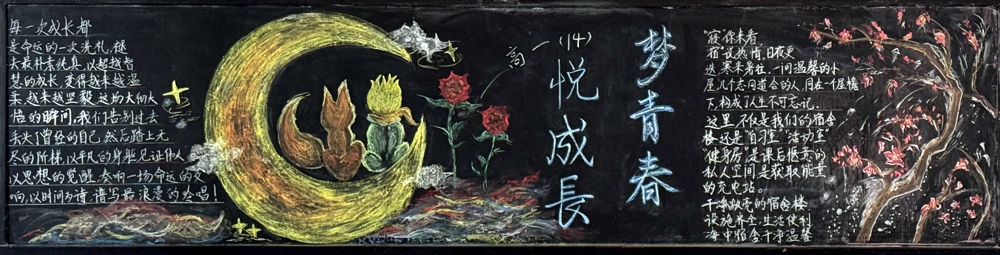 每一次成长都
是命运的一次洗礼,褪
去最朴素纯真,以超越智
慧的成长,变得越来越温
柔,越来越坚毅,这场大彻大
悟的瞬间,我们告别过去
丢失了曾经的自己,然后踏上无
尽的阶梯,以平凡的身躯见证伟人
以思想的觉醒,奏响一场命运的交
响,以时间为谱,谱写最浪漫的咏唱!
高一(14)
悦成長
梦青春
宿你未看
宿管热情,日夜更
迭,寒来暑往,一间温馨的小
屋,几个志同道合的人,同在一个屋檐
下,构成了人生不可忘记.
这里,不仅是我们的宿舍
楼还是"自习室""活动室"
"健身房"是课后惬意的
私人空间是获取能量
的充电站。
干净敞亮的宿舍楼
设施齐全,生活便利
海中宿舍干净温馨